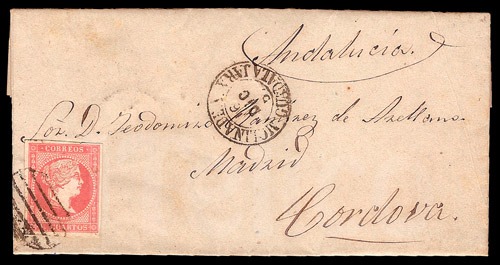 Andalucía.
Sor. D. Teodomiro Ramírez de Arellano.
Madrid
Cordova.
CORREOS
CUARTOS